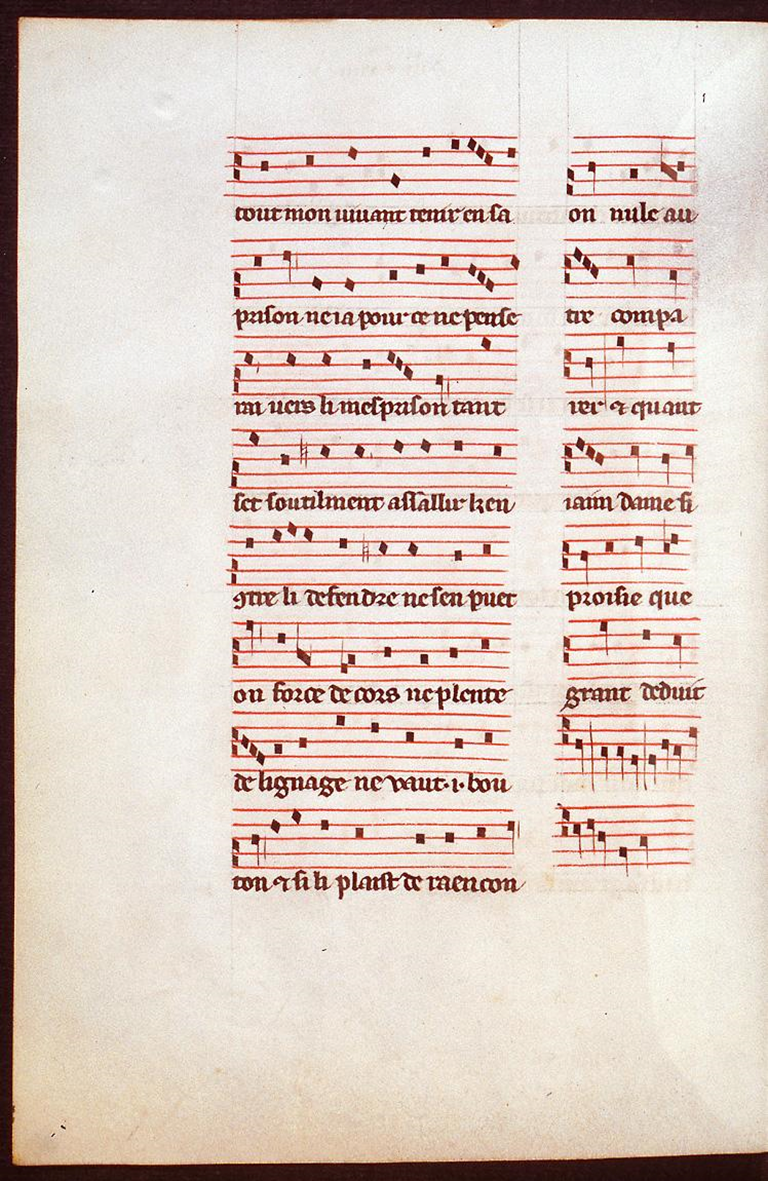 tout mon uiuant tenir en sa
prison ne ia pour ce ne pense
rai uers li mesprison tant
set soutilment assallir ken
9tre li defendre ne sen puet
on force de cors ne plente
de lignage ne vaut ·i· bou
ton ⁊ si li plaist de raencon
on nule au
tre compa
rer ⁊ quant
iaim dame si
proisie que
grant deduit